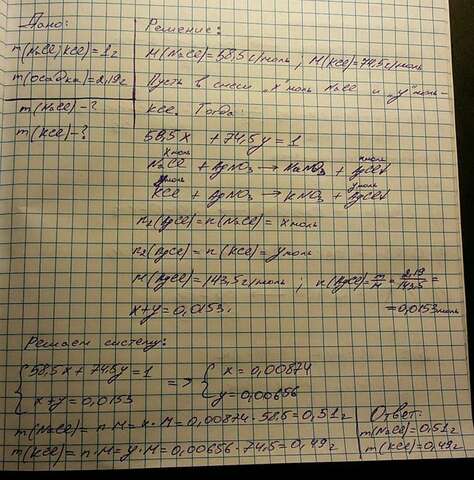 Дано:
m(NaCl; KCl) = 1 г
m(осадка) = 2,19 г
m(NaCl) - ?
m(KCl) - ?
Решение:
M(NaCl) = 58,5 г/моль ; M(KCl) = 74,5 г/моль
Пусть в смеси „x" моль NaCl и „y" моль -
KCl. Тогда:
58,5x + 74,5y = 1
x моль x моль
NaCl + AgNO3 → NaNO3 + AgCl↓
y моль y моль
KCl + AgNO3 → KNO3 + AgCl↓
n1(AgCl) = n(NaCl) = x моль
n2(AgCl) = n(KCl) = y моль
M(AgCl) = 143,5 г/моль ; n(AgCl) = m/M = 2,19/143,5 =
= 0,0153 моль
x + y = 0,0153.
Решаем систему:
{ 58,5x + 74,5y = 1 => { x = 0,00874
x + y = 0,0153 y = 0,00656
m(NaCl) = n · M = x · M = 0,00874 · 58,5 = 0,51 г
m(KCl) = n · M = y · M = 0,00656 · 74,5 = 0,49 г
Ответ:
m(NaCl) = 0,51 г
m(KCl) = 0,49 г